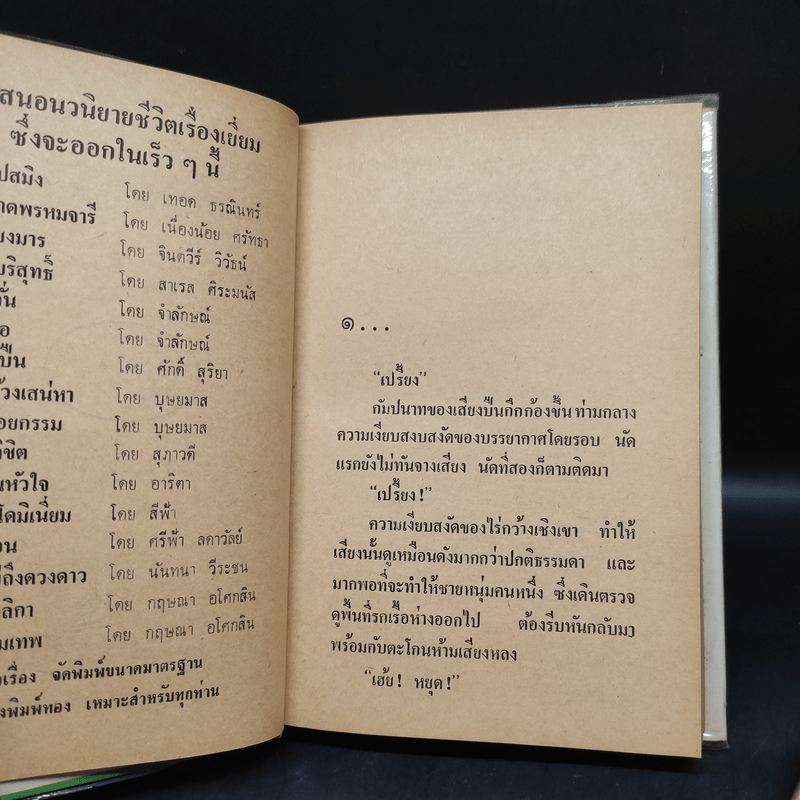 สนอนวนิยายชีวิตเรื่องเยี่ยม
ซึ่งจะออกในเร็ว ๆ นี้
ปสมิง โดย เทอด ธรณินทร์
าดพรหมจารี โดย เนื่องน้อย ศรัทธา
งมาร โดย จินตวีร์ วิวัธน์
บริสุทธิ์ โดย สาเรส ศิระมนัส
วั่น โดย จำลักษณ์
อ โดย จำลักษณ์
ปืน โดย ศักดิ์ สุริยา
ว้วงเสน่หา โดย บุษยมาส
อยกรรม โดย บุษยมาส
ชิต โดย สุภาวดี
นหัวใจ โดย อาริตา
โดมิเนี่ยม โดย สีฟ้า
อน โดย ศรีฟ้า ลดาวัลย์
ถึงดวงดาว โดย นันทนา วีระชน
ลิกา โดย กฤษณา อโศกสิน
มเทพ โดย กฤษณา อโศกสิน
เรื่อง จัดพิมพ์ขนาดมาตรฐาน
งพิมพ์ทอง เหมาะสำหรับทุกท่าน
๑...
“เปรี้ยง”
กัมปนาทของเสียงปืนกึกก้องขึ้น ท่ามกลาง
ความเงียบสงบสงัดของบรรยากาศโดยรอบ นัด
แรกยังไม่ทันจางเสียง นัดที่สองก็ตามติดมา
“เปรี้ยง!”
ความเงียบสงัดของไร่กว้างเชิงเขา ทำให้
เสียงนั้นดูเหมือนดังมากกว่าปกติธรรมดา และ
มากพอที่จะทำให้ชายหนุ่มคนหนึ่ง ซึ่งเดินตรวจ
ดูพื้นที่รกเรื้อห่างออกไป ต้องรีบหันกลับมา
พร้อมกับตะโกนห้ามเสียงหลง
“เฮ้ย! หยุด!”